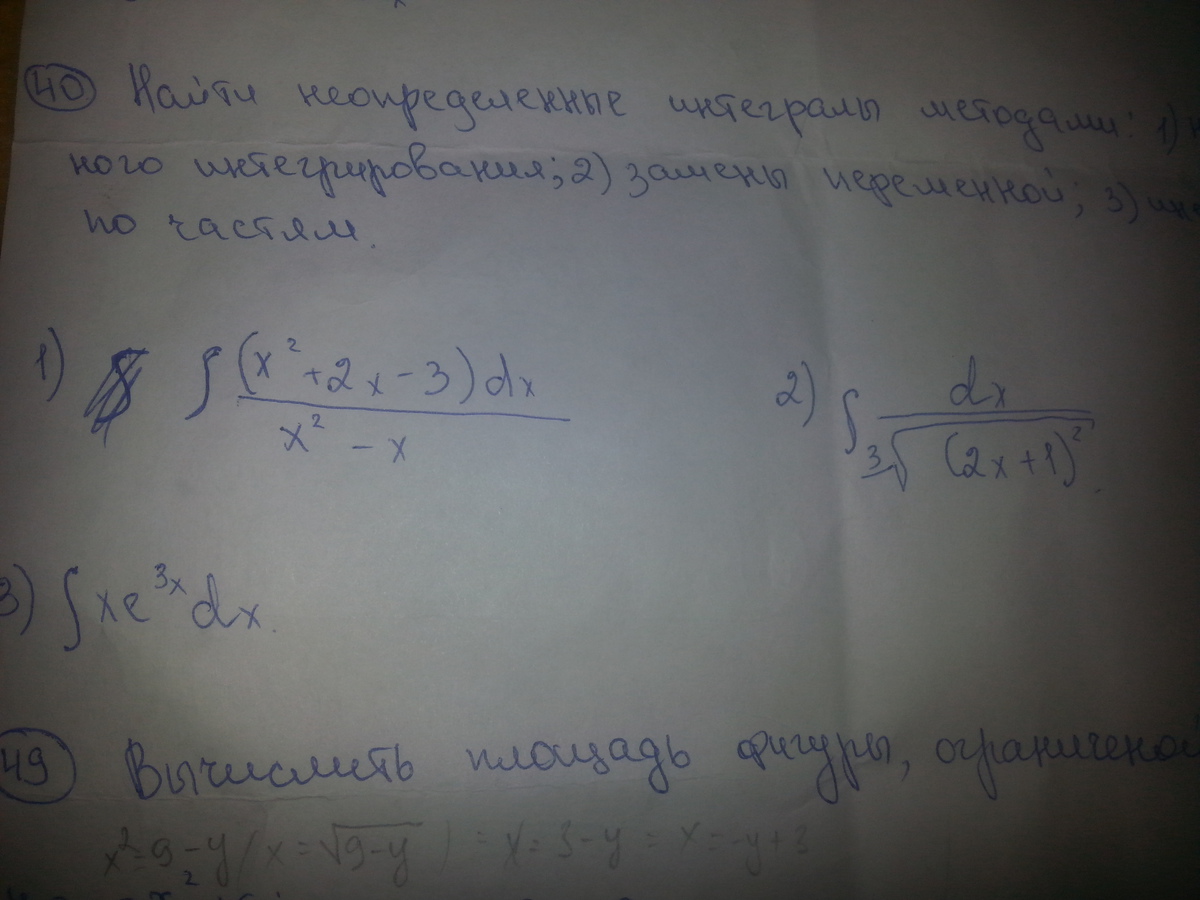 40 Найти неопределенные интегралы методами: 1)
ного интегрирования; 2) замены переменной; 3)
по частям.
1) ∫ (x² + 2x - 3) dx / x² - x
2) ∫ dx / ∛(2x+1)²
3) ∫ x e^3x dx.
49 Вычислить площадь фигуры, ограниченой
x² = 9 - y / x = √9-y ) = x = 3 - y = x = -y + 3